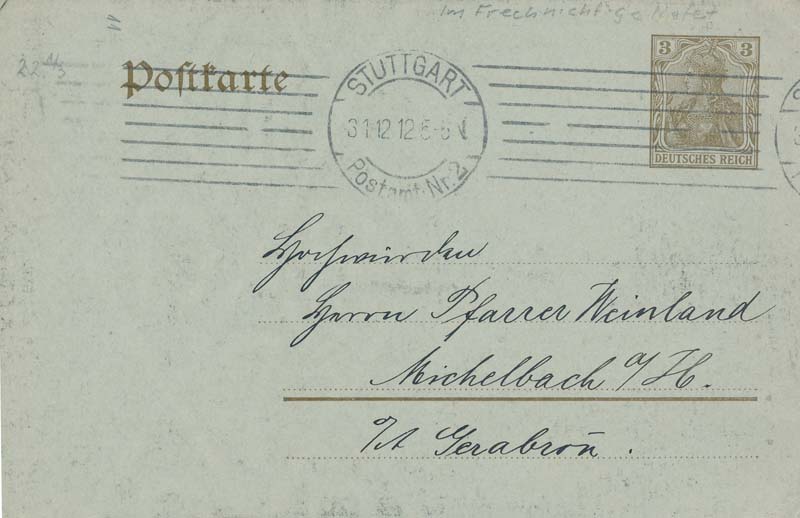 22 4/3
Postkarte
STUTTGART
31 12 12 5-6 N
Postamt Nr. 2
3 3
DEUTSCHES REICH
Hochwürden
Herrn Pfarrer Weinland
Michelbach a/H.
O/A Gerabronn.